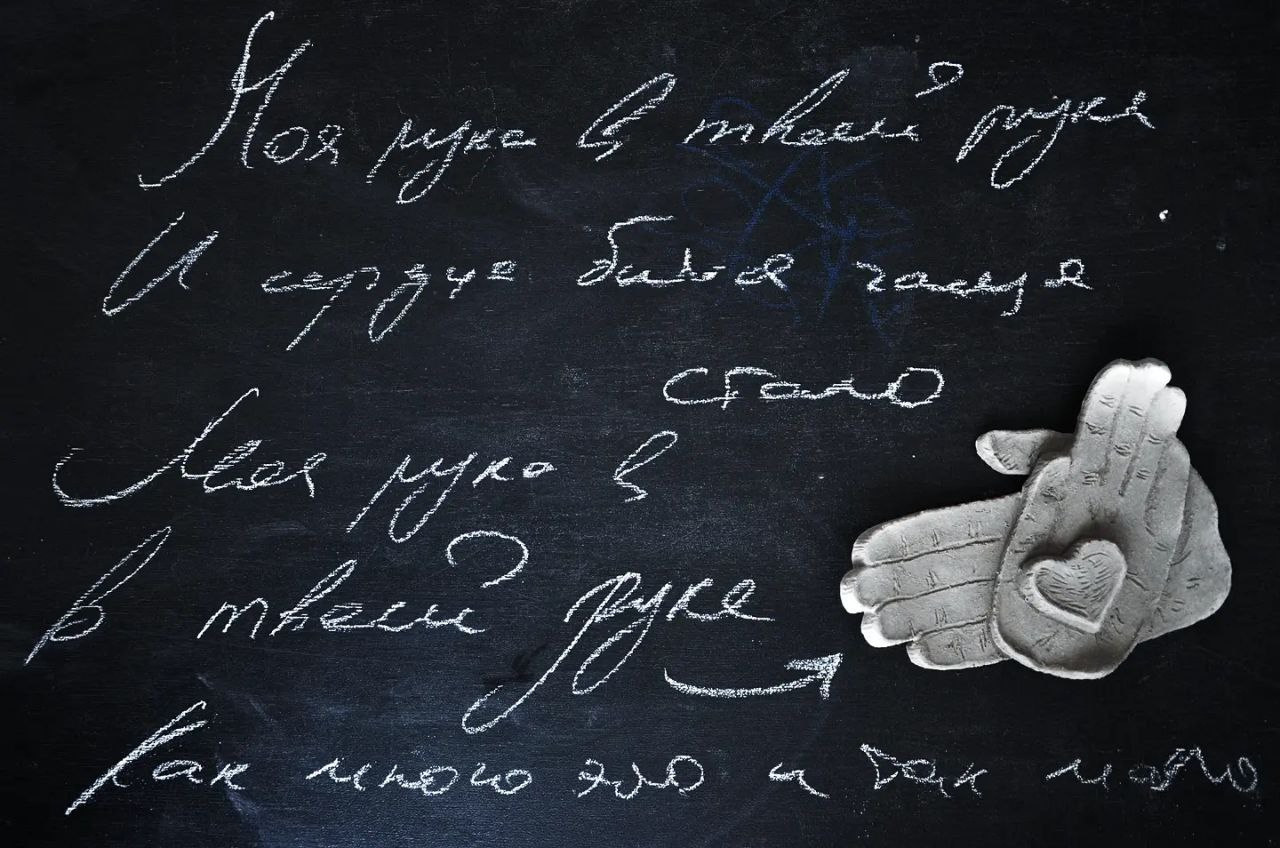 Моя рука в твоей руке
И сердце биться чаще
стало
Моя рука в
в твоей руке
Как много это и так мало